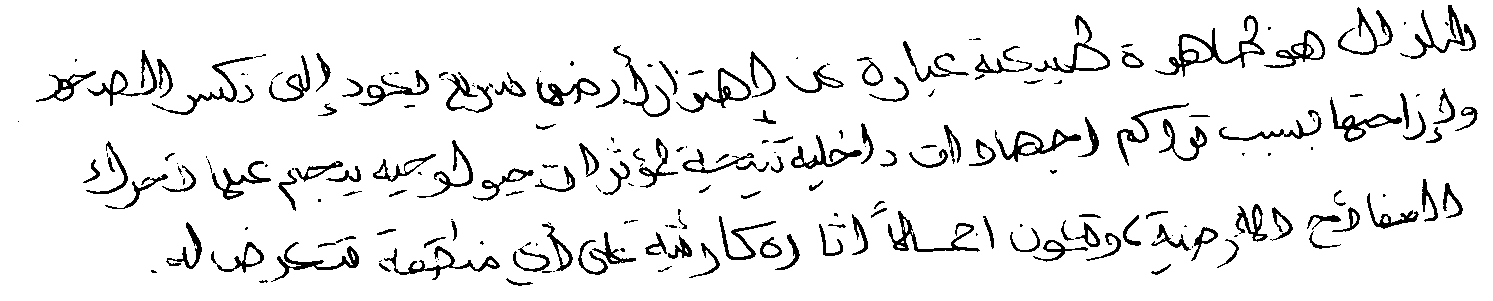 الزلزال هو ظاهرة طبيعية عبارة عن إهتزاز أرضي سريع يعود إلى تكسر الصخور
وإزاحتها بسبب تراكم اجهادات داخلية نتيجة لمؤثرات جيولوجيه ينجم عنها تحرك
الصفائح الارضية، وتكون اجمالاً اثاره كارثية على أي منطقة تتعرض له.